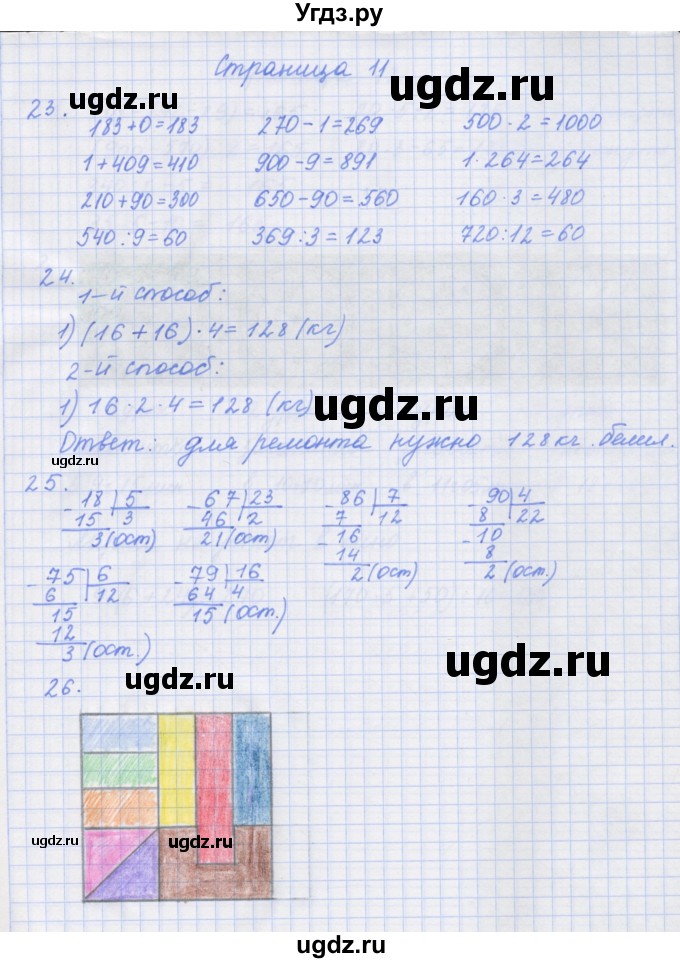 Угдз.ру
Страница 11
ugdz.ru
ugdz.ru
23.
183+0=183 270-1=269 500·2=1000
1+409=410 900-9=891 1·264=264
210+90=300 650-90=560 160·3=480
540:9=60 369:3=123 720:12=60
24.
1-й способ:
1) (16+16)·4=128 (кг)
2-й способ:
1) 16·2·4=128 (кг)
ugdz.ru
Ответ: для ремонта нужно 128 кг. белил.
ugdz.ru
25.
-18|5 -67|23 -86|7 -90|4
15 3 46 2 7 12 8 22
3(ост) 21(ост) -16 -10
14 8
2(ост) 2(ост.)
-75|6 -79|16
6 12 64 4
15 15(ост.)
12
3(ост.)
ugdz.ru
ugdz.ru
26.
ugdz.ru
ugdz.ru
ugdz.ru